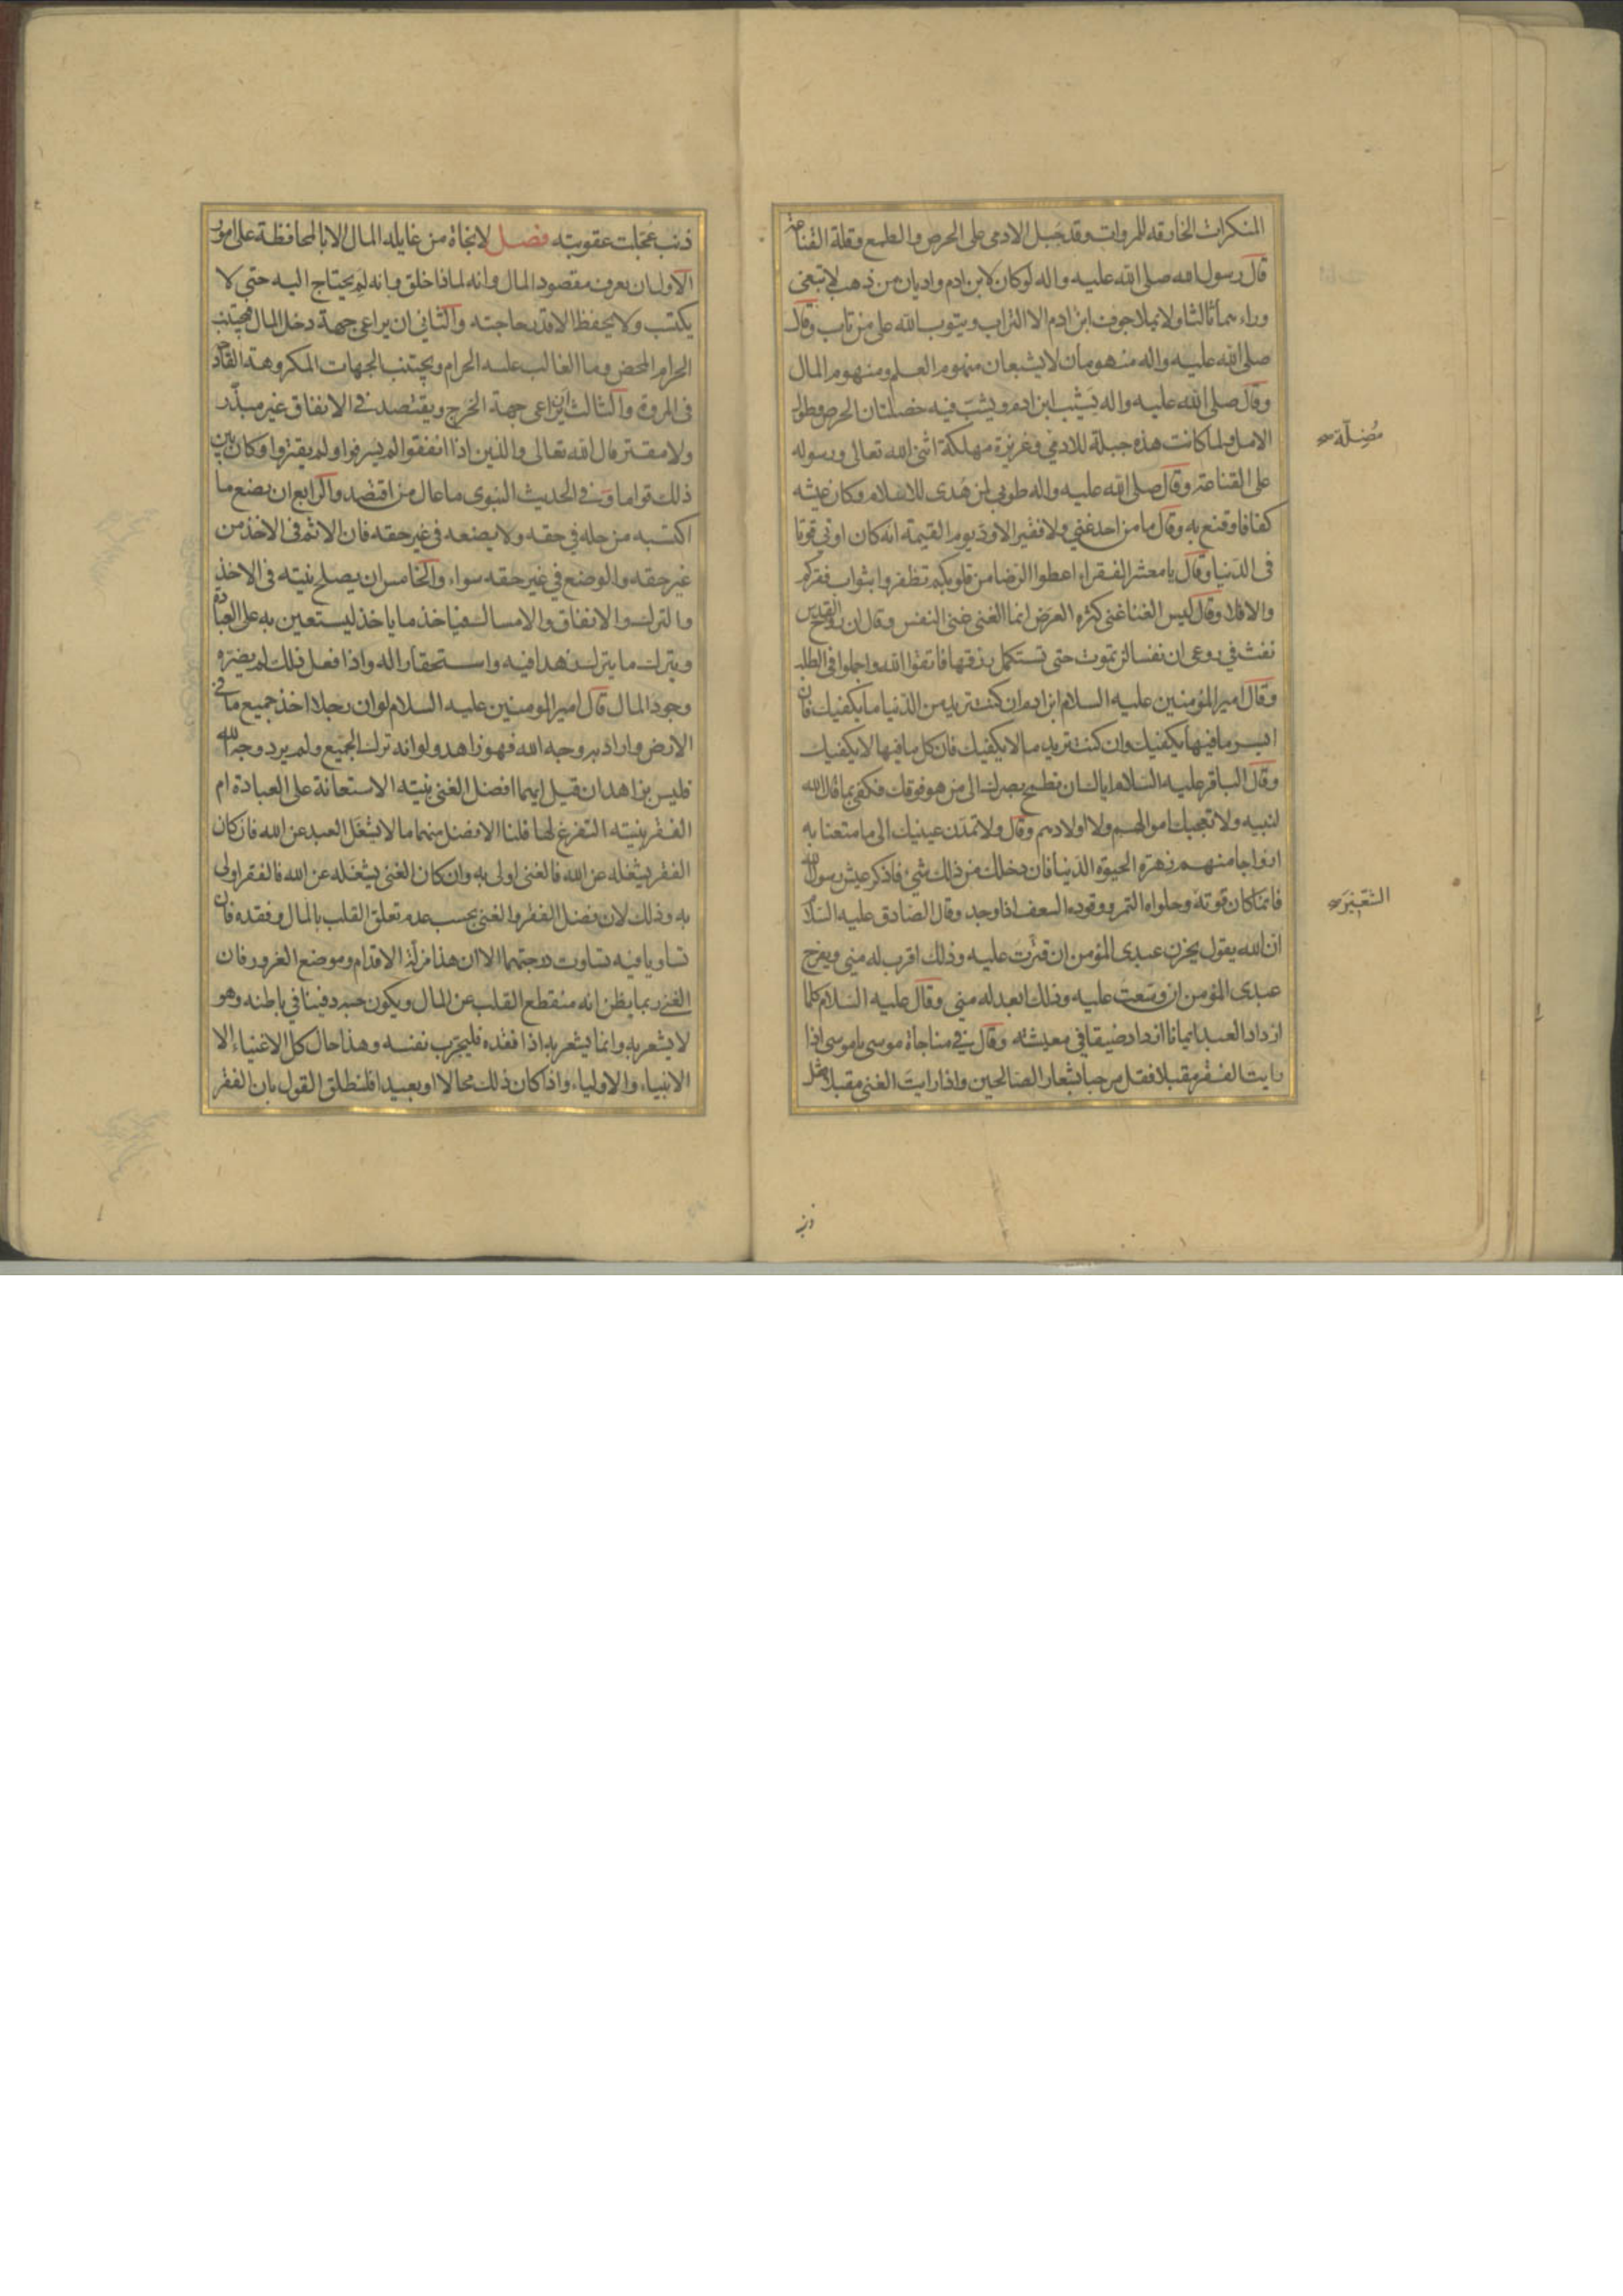 المنكرات الخارقه للمروات وقد جبل الادمى على الحرص والطمع وقلة القناعة
قال رسول الله صلى الله عليه واله لو كان لابن ادم واديان من ذهب لابتغى
وراءهما ثالثا ولا يملا جوف ابن ادم الا التراب ويتوب الله على من تاب وقال
صلى الله عليه واله منهومان لا يشبعان منهوم العلم ومنهوم المال
وقال صلى الله عليه واله يشب ابن ادم ويشب فيه خصلتان الحرص وطول
الامل ولما كانت هذه جبلة للادمي وغريزة مهلكة اثنى الله تعالى ورسوله
مُضِلّة
على القناعة وقال صلى الله عليه واله طوبى لمن هُدى للاسلام وكان عيشه
كفافا وقنع به وقال ما من احد غني ولا فقير الا ودّ يوم القيمة انه كان اوتي قوتا
فى الدّنيا وقال يا معشر الفقراء اعطوا الرّضا من قلوبكم تظفروا بثواب فقركم
والا فلا وقال ليس الغنا عن كثره العرض انما الغنى غنى النفس وقال ان روح القدس
نفث في روعى ان نفسا لن تموت حتى تستكمل رزقها فاتقوا الله واجملوا فى الطلب
وقال امير المؤمنين عليه السلام ابن ادم ان كنت تريد من الدّنيا ما يكفيك فان
ايسر ما فيها يكفيك وان كنت تريد ما لا يكفيك فان كل ما فيها لا يكفيك
وقال الباقر عليه السّلام اياك ان تطمح بصرك الى من هو فوقك فكفى بما قال الله
لنبيه ولا تعجبك اموالهم ولا اولادهم وقال ولا تمدّن عينيك الى ما متعنا به
ازواجا منهم زهرة الحيوة الدّنيا فان دخلك من ذلك شئ فاذكر عيش رسول الله
فانما كان قوته وحلواه التمر ووقوده السعف اذا وجد وقال الصّادق عليه السّلام
الشعير
ان الله يقول يحزن عبدى المؤمن ان قترّت عليه وذلك اقرب له مني ويفرح
عبدى المؤمن ان وسّعت عليه وذلك ابعد له مني وقال عليه السّلام كلما
ازداد العبد ايمانا ازداد ضيقا في معيشته وقال في مناجاة موسى يا موسى اذا
رايت الفقر مقبلا فقل مرحبا بشعار الصالحين واذا رايت الغنى مقبلا فقل
ذنب
ذنب عُجّلت عقوبته فصل لا نجاة من غايله المال الا بالمحافظة على امور
الاول ان يعرف مقصود المال وانه لماذا خلق وانه لم يحتاج اليه حتى لا
يكتب ولا يحفظ الا قدر حاجته والثاني ان يراعى جهة دخل المال فيجتنب
الحرام المحض وما الغالب عليه الحرام ويجتنب الجهات المكروهة القادحة
فى المروة والثالث ان يراعى جهة الخرج ويقتصد في الانفاق غير مبذّر
ولا مقتر قال الله تعالى والذين اذا انفقوا لم يسرفوا ولم يقتروا وكان بين
ذلك قواما وفي الحديث النبوى ما عال من اقتصد والرابع ان يضع ما
اكتسبه من حله في حقه ولا يضعه في غير حقه فان الاثم فى الاخذ من
غير حقه والوضع في غير حقه سواء والخامس ان يصلح نيته فى الاخذ
والترك والانفاق والامساك فياخذ ما ياخذ ليستعين به على العبادة
ويترك ما يترك زهدا فيه واستحقارا له واذا فعل ذلك لم يضره
وجود المال قال امير المومنين عليه السلام لو ان رجلا اخذ جميع ما في
الارض واراد به وجه الله فهو زاهد ولو انه ترك الجميع ولم يرد وجه الله
فليس بزاهد ان قيل ايهما افضل الغنى بنيته الاستعانة على العبادة ام
الفقر بنيته التفرغ لها قلنا الافضل منهما ما لا يشغل العبد عن الله فان كان
الفقر يشغله عن الله فالغنى اولى به وان كان الغنى يشغله عن الله فالفقر اولى
به وذلك لان فضل الفقر والغنى بحسب عدم تعلق القلب بالمال وفقده فان
تساويا فيه تساوت درجتهما الا ان هذا مزلّة الاقدام وموضع الغرور فان
الغنى ربما يظن انه منقطع القلب عن المال ويكون حبه دفينا في باطنه وهو
لا يشعر به وانما يشعر به اذا فقده فليجرّب نفسه وهذا حال كل الاغنياء الا
الانبياء والاولياء واذا كان ذلك محالا او بعيدا فلنطلق القول بان الفقر